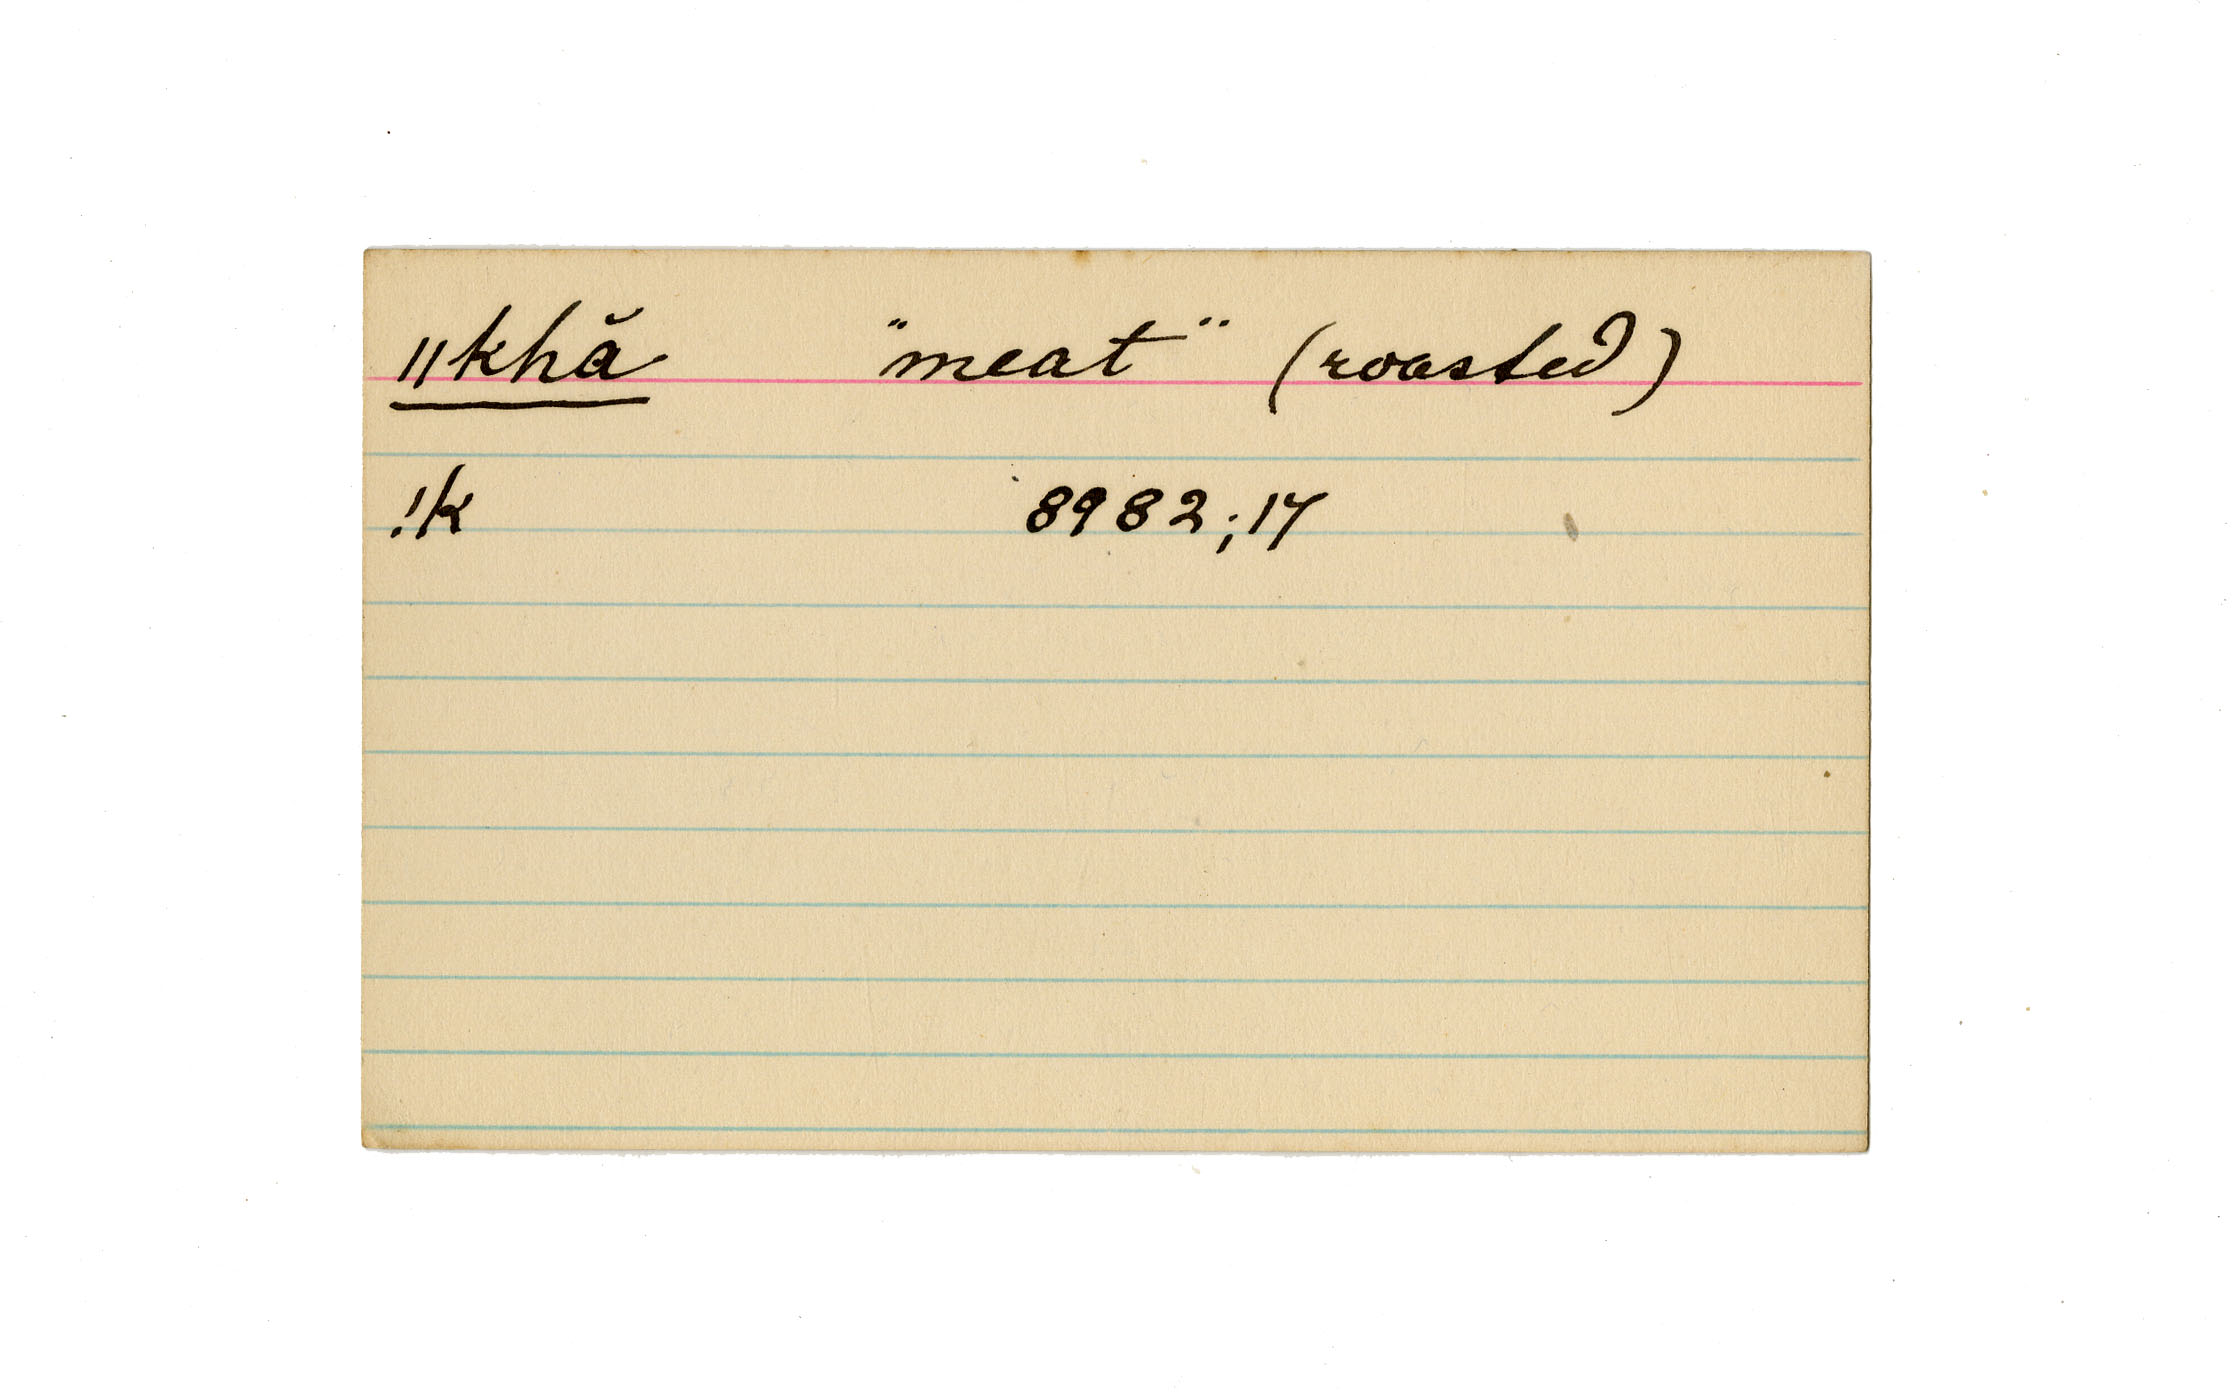 ǁkhă "meat" (roasted)
!k 8982;17